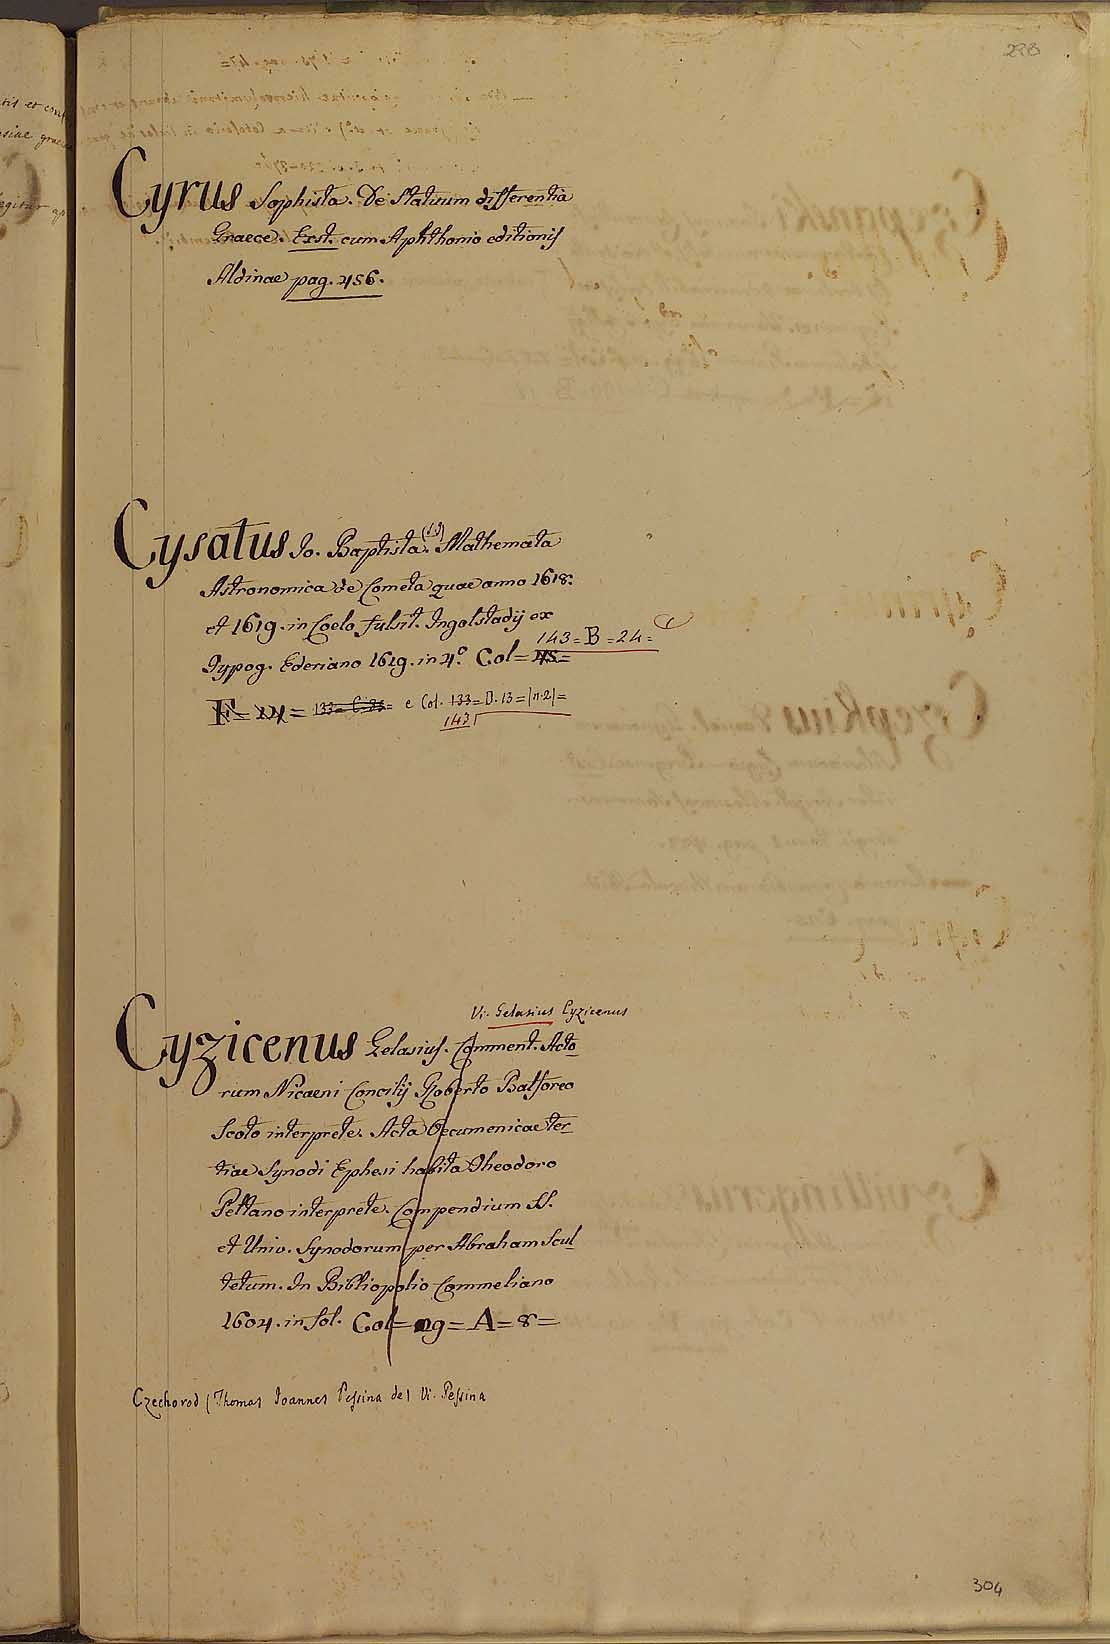 Cyrus Sophista. De Statuum differentia
Graece. Exst. cum Aphthonio editionis
Aldinae pag. 456.
Cysatus Io. Baptista. (S.J) Mathemata
Astronomica de Cometa quae anno 1618.
et 1619. in Coelo fulsit. Ingolstadij ex
143=B=24=
Typog. Ederiano 1619. in 4.° Col= 45=
F= = 133= C. = e Col. 133=D. 13=(n.2)=
143
Vi. Gelasius Cyzicenus
Cyzicenus Gelasius. Comment. Acto
rum Nicaeni Concilij Roberto Balforeo
Scoto interprete. Acta Oecumenicae ter
tiae Synodi Ephesi habita Theodoro
Peltano interprete. Compendium SS.
et Univ. Synodorum per Abraham Scul
tetum. In Bibliopolio Commeliano
1604. in fol. Col= =A=8=
Czechorod (Thomas Joannes Pessina de) Vi. Pessina
304